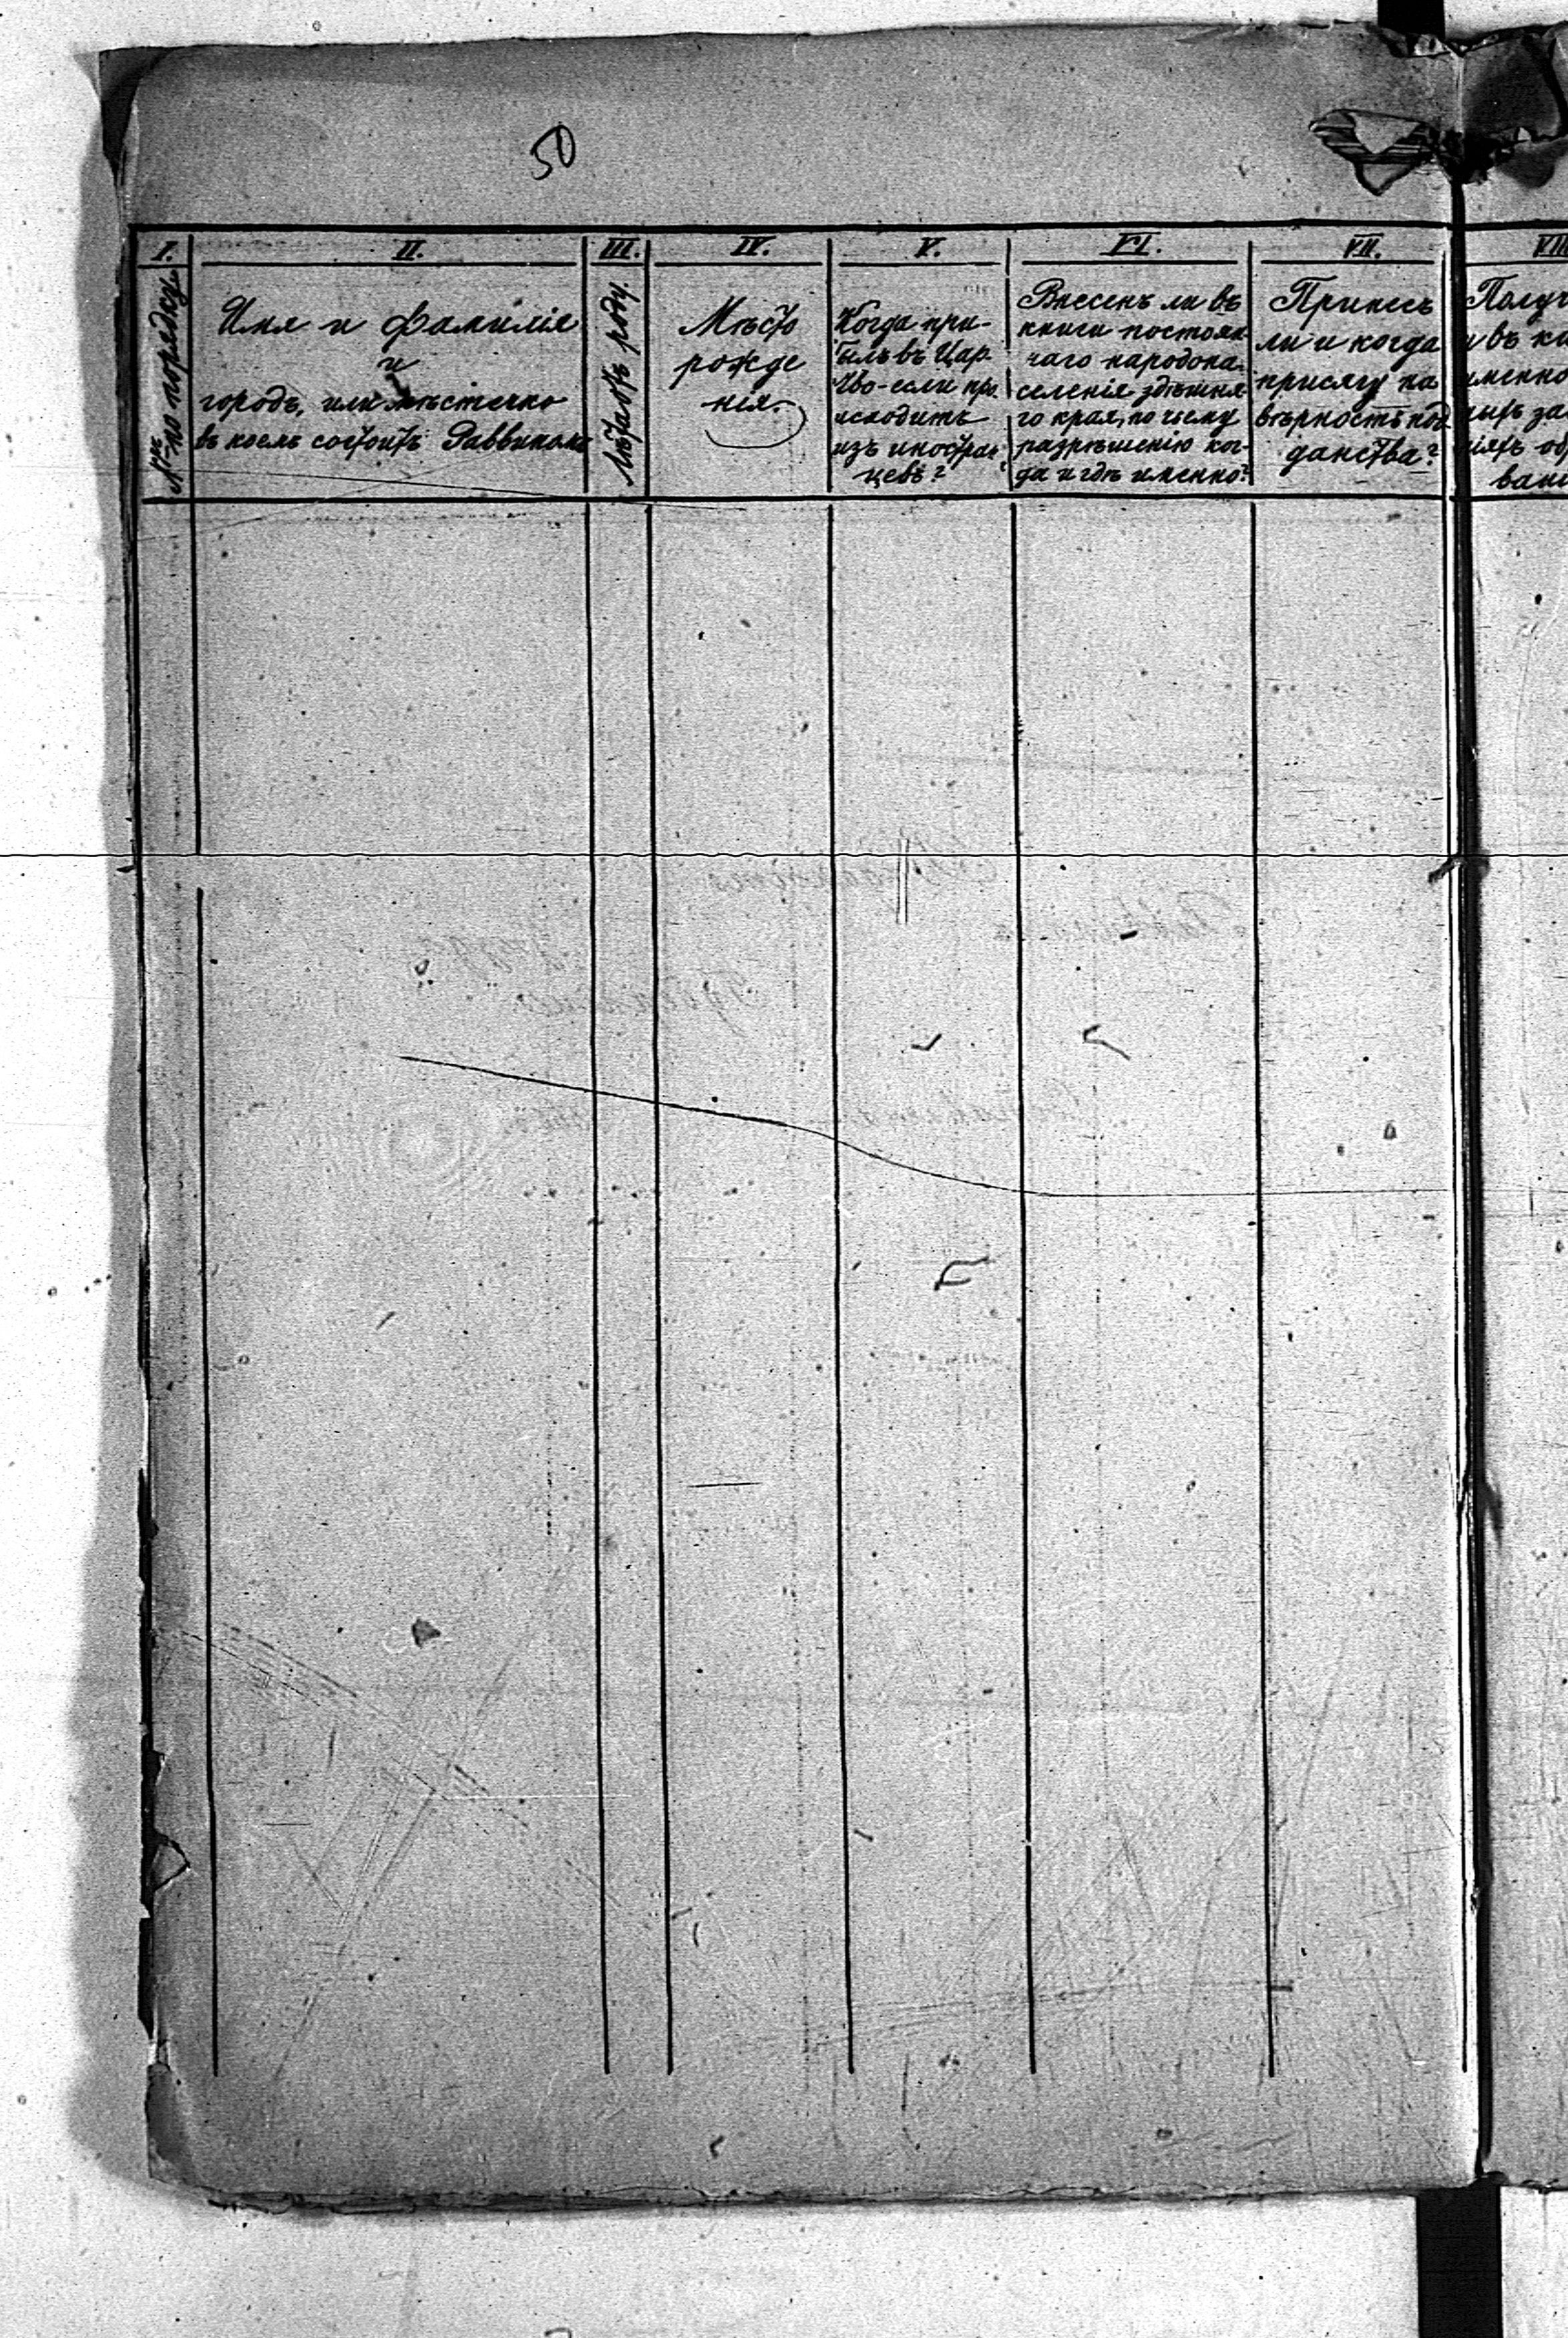 50
I.
№№ по порядку.
II.
Имя и фамилія
и
городъ, или мѣстечко
въ коемъ состоитъ Раввиномъ
III.
Лѣта отъ роду.
IV.
Мѣсто
рожде
нія.
V.
Когда при-
былъ въ Цар-
тво-если про
исходитъ
изъ иностран
цевъ?
VI.
Внесенъ ли въ
книги постоян
наго народона-
селенія здѣшня-
го края, по чьему
разрѣшенію ког-
да и гдѣ именно?
VII.
Принесъ
ли и когда
присягу на
вѣрность под
данства?
VIII
Полу
и въ ка
именно
ныхъ за
ніяхъ об
вані